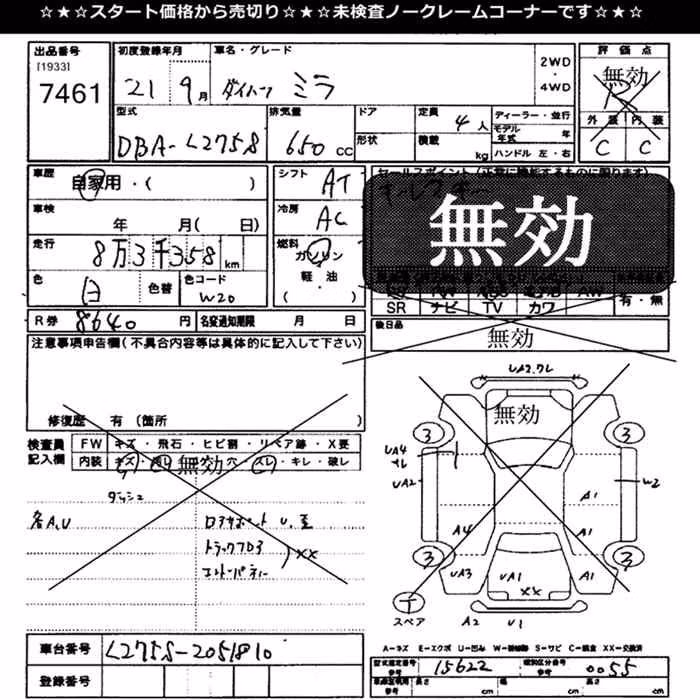 ☆★☆★スタート価格から売切り☆★☆★未検査ノークレームコーナーです☆★☆
出品番号
[1933]
7461
初度登録年月
21 9月
車名・グレード
ダイハツ ミラ
2WD
・
4WD
評価点
無効
R
外装 内装
C C
型式
DBA-L275S
排気量
650 CC
ドア
形状
定員
4人
積載
kg
ディーラー・並行
モデル年式 年
ハンドル 左・右
車歴
自家用・( )
車検
年 月( 日)
走行
8万3千358 km
色
白
色替
色コード
W20
シフト
AT
冷房
AC
燃料
ガソリン
軽・油
( )
セールスポイント(正常に機能するものに限ります)
キーレスキー
無効
SR ナビ TV カワ
AW
有・無
R券 8640 円
名変通知期限 月 日
後日品
無効
注意事項申告欄(不具合内容等は具体的に記入して下さい)
修復歴 有(箇所 )
検査員
記入欄
FW キズ・飛石・ヒビ割・リペア跡・X要
内装 キズ・汚れ・穴・スレ・キレ・破レ
無効
ダッシュ
各A,U
トランクフロア
XX
エンドパネル
UA2.ワレ
無効
3
3
3
3
UA4
UA2
W2
A1
A4
A1
UA3
UA1
XX
A1
スペア
A2
U1
A=キズ E=エクボ U=凹み W=補修跡 S=サビ C=腐食 XX=交換済
車台番号
L275S-2051810
登録番号
型式指定番号
参考
15622
類別区分番号
参考
0055
車検証寸法
参考
長さ cm
幅 cm
高さ cm